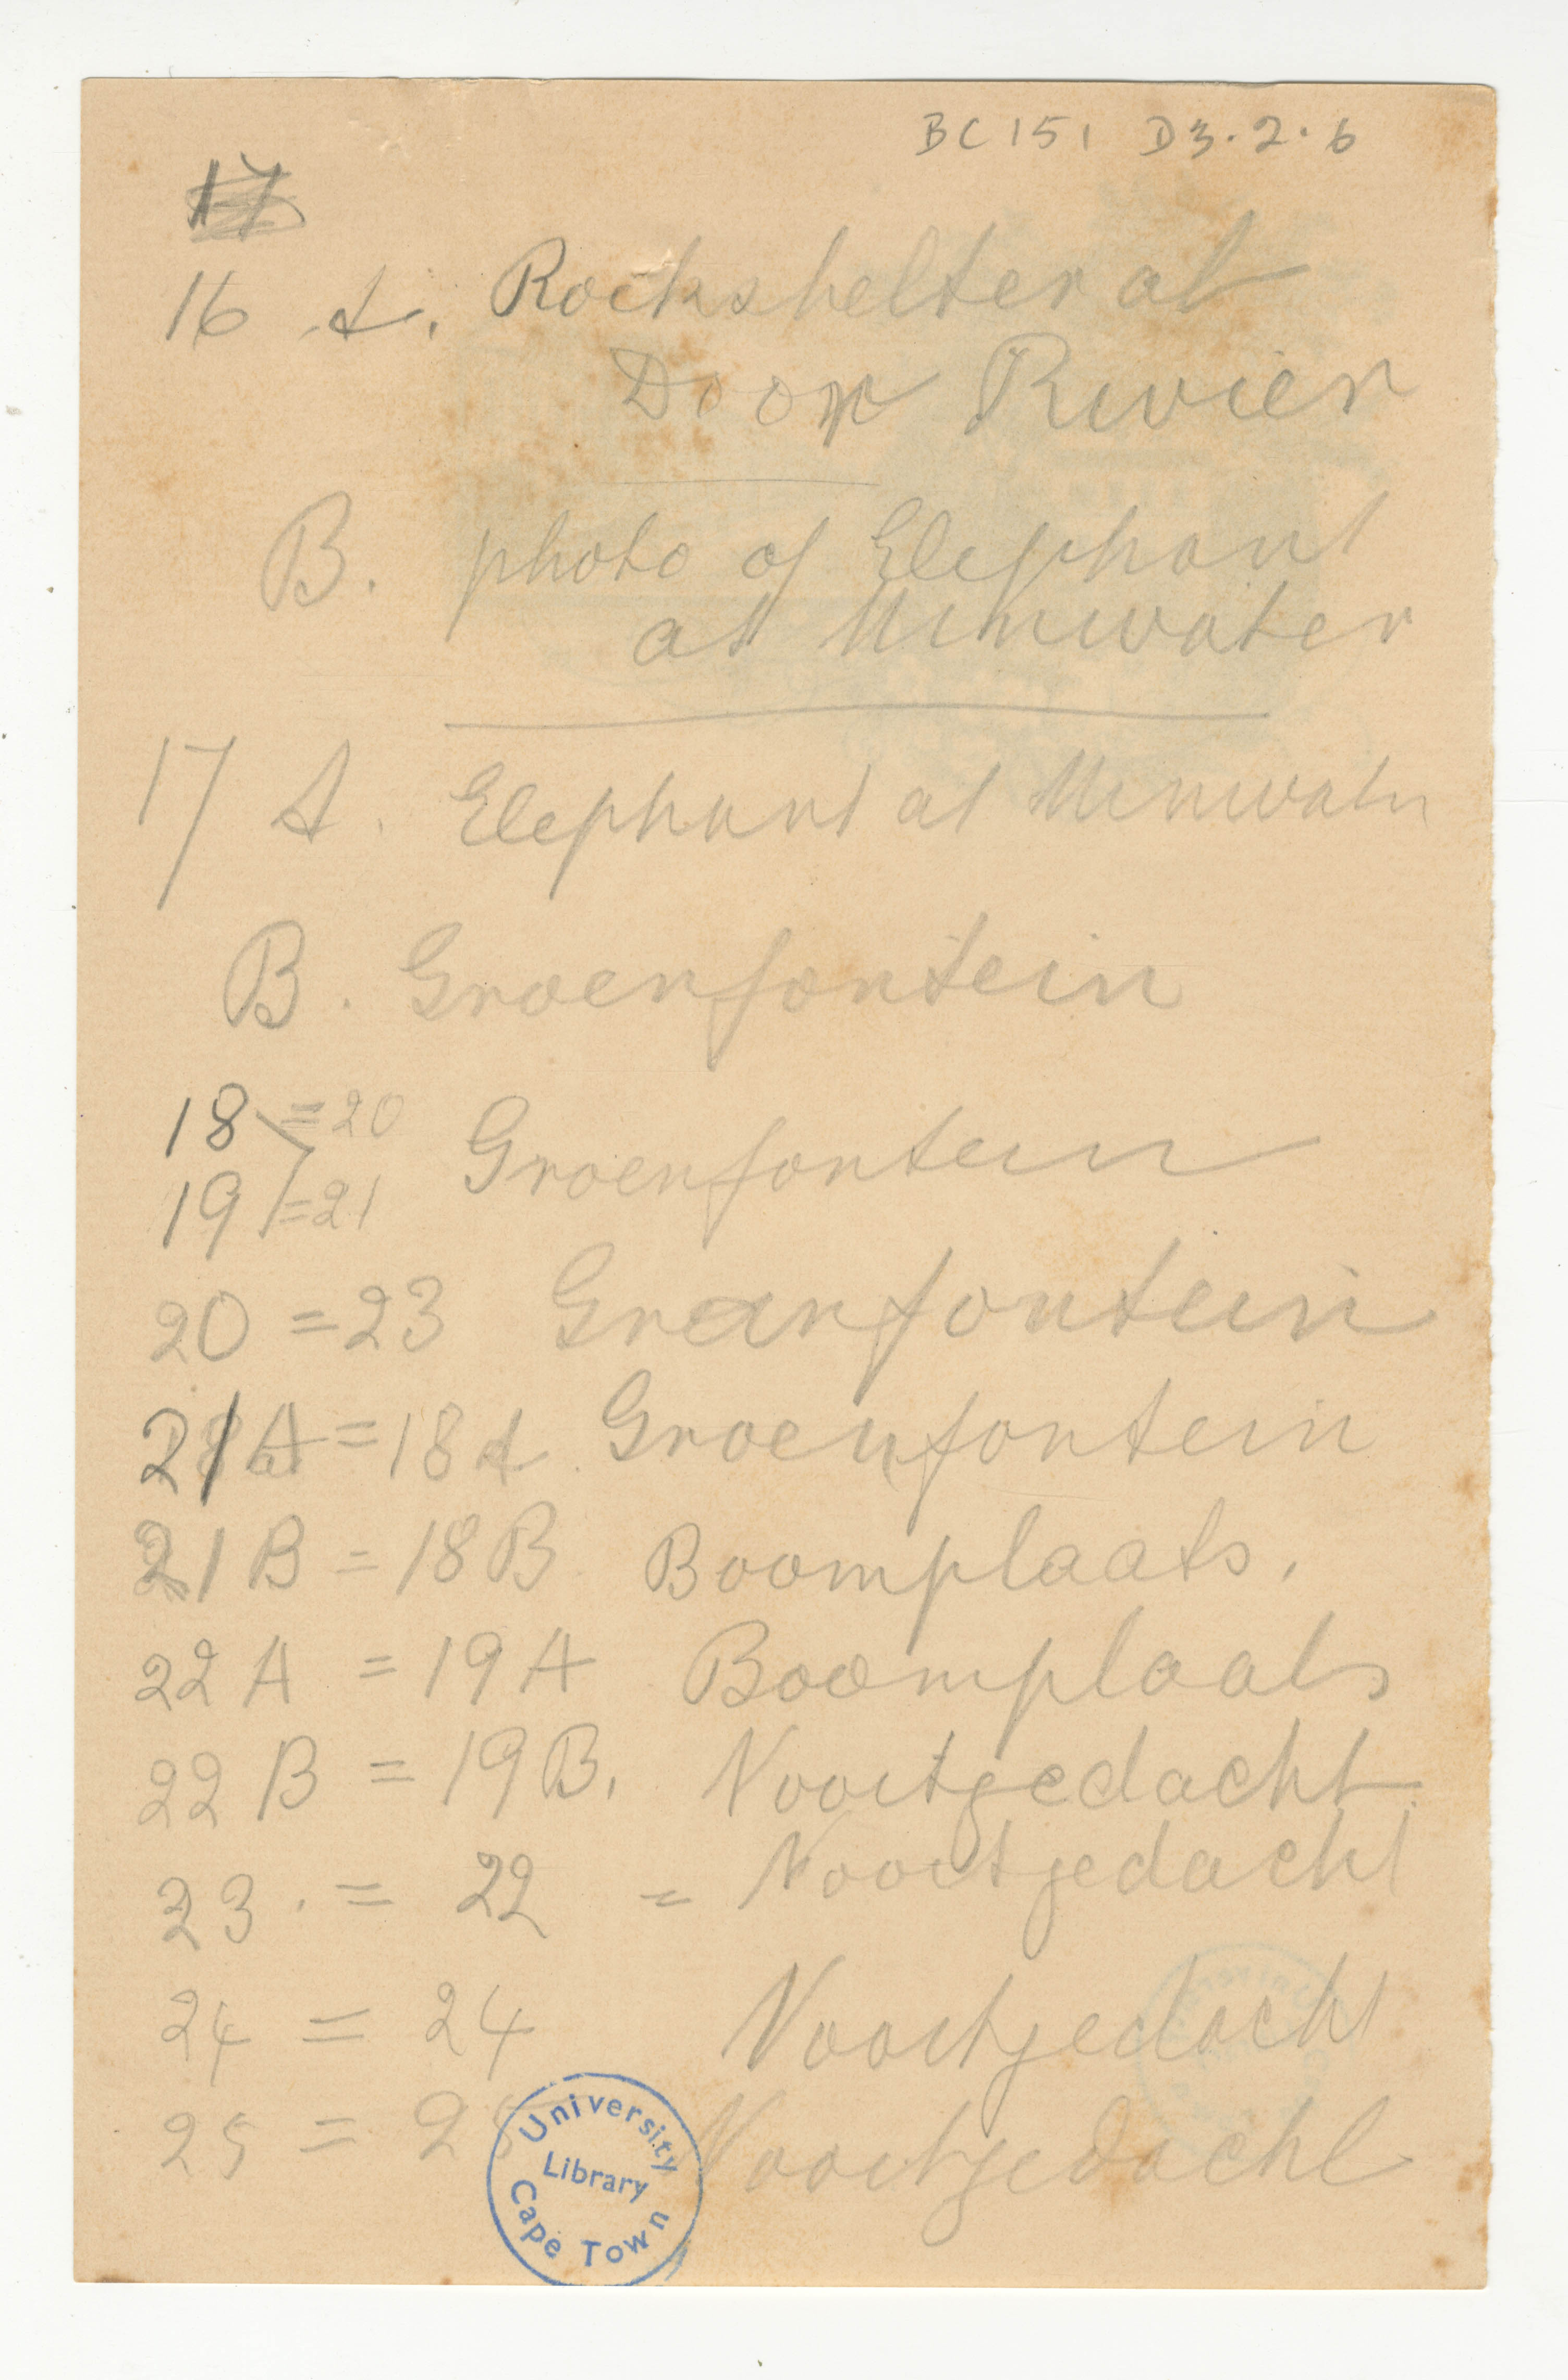 BC 151 D3.2.6
17
16 A. Rockshelter at
Doorn Rivier
B. photo of Elephant
at Minwater
17 A. Elephant at Minwater
B. Groenfontein
18 = 20
Groenfontein
19 = 21
20 = 23 Groenfontein
21 A = 18 A Groenfontein
21 B = 18 B Boomplaats.
22 A = 19 A Boomplaats
22 B = 19 B. Nooitgedacht
23 . = 22 = Nooitgedacht
24 = 24 Nooitgedacht
25 = 25 Nooitgedacht
University
Library
Cape Town